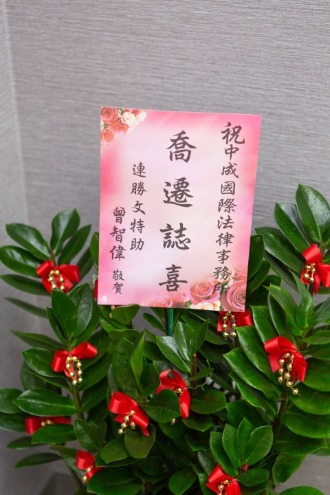 祝中成國際法律事務所
喬遷誌喜
連勝文特助
曾智偉 敬賀